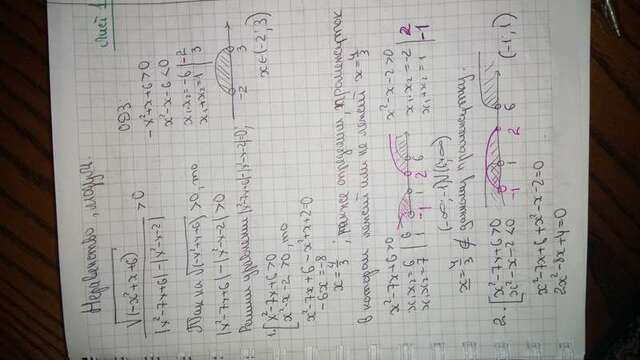 Неравенство, модули.
Лист 1
√(-x²+x+6)
|x²-7x+6|-|x²-x-2| >0
ОДЗ
-x²+x+6>0
x²-x-6<0
x₁x₂=-6 | -2
x₁+x₂=1 | 3
-2 3
x∈(-2;3)
Так как √(-x²+x+6) >0, то
|x²-7x+6|-|x²-x-2|>0
Решим уравнение |x²-7x+6|-|x²-x-2|=0;
1. [x²-7x+6>0
x²-x-2>0, то
x²-7x+6-x²+x+2=0
-6x=-8
x=4/3; далее определим, промежуток
в котором лежит или не лежит x=4/3
x²-7x+6>0
x₁x₂=6 | 6
x₁x₂=7 | 1
-1 1 2 6
x²-x-2>0
x₁·x₂=-2 | 2
x₁+x₂=1 | -1
(-∞;-1)∪(6;∞)
x=4/3 ∉ данному промежутку.
2. [x²-7x+6>0
x²-x-2<0
-1 1 2 6
(-1;1)
x²-7x+6+x²-x-2=0
2x²-8x+4=0